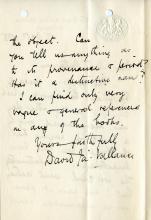 the object. Can
you tell us anything as
to its provenance & period?
Has it a distinctive name?
I can find only very
vague & general references
in any of the books.
Yours faithfully
David